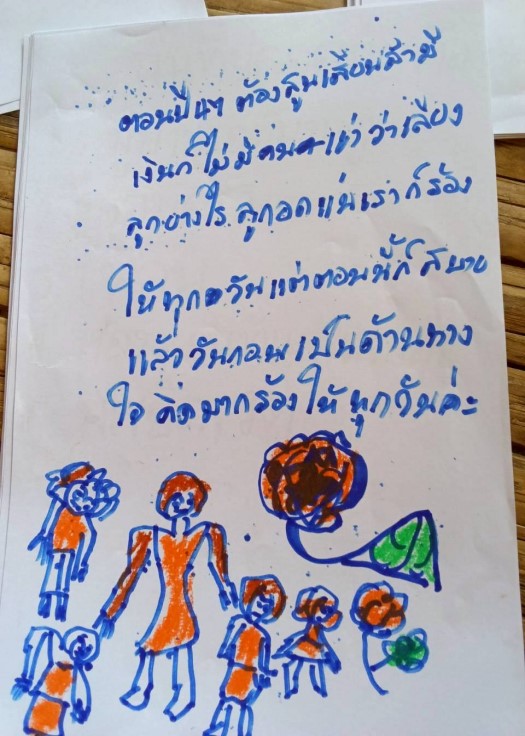 ตอนปี 47 ต้องสูนเสียนสามี
เงินก็ไม่มี คนแก่ว่าเลียง
ลูกอย่างไร ลูกอดแน่เราก็ร้อง
ให้ทุกวันแต่ตอนนี้ก็สบาย
แล้ววันกอนเป็นด้านทาง
ใจ คิดมากร้องให้ทุกวันค่ะ